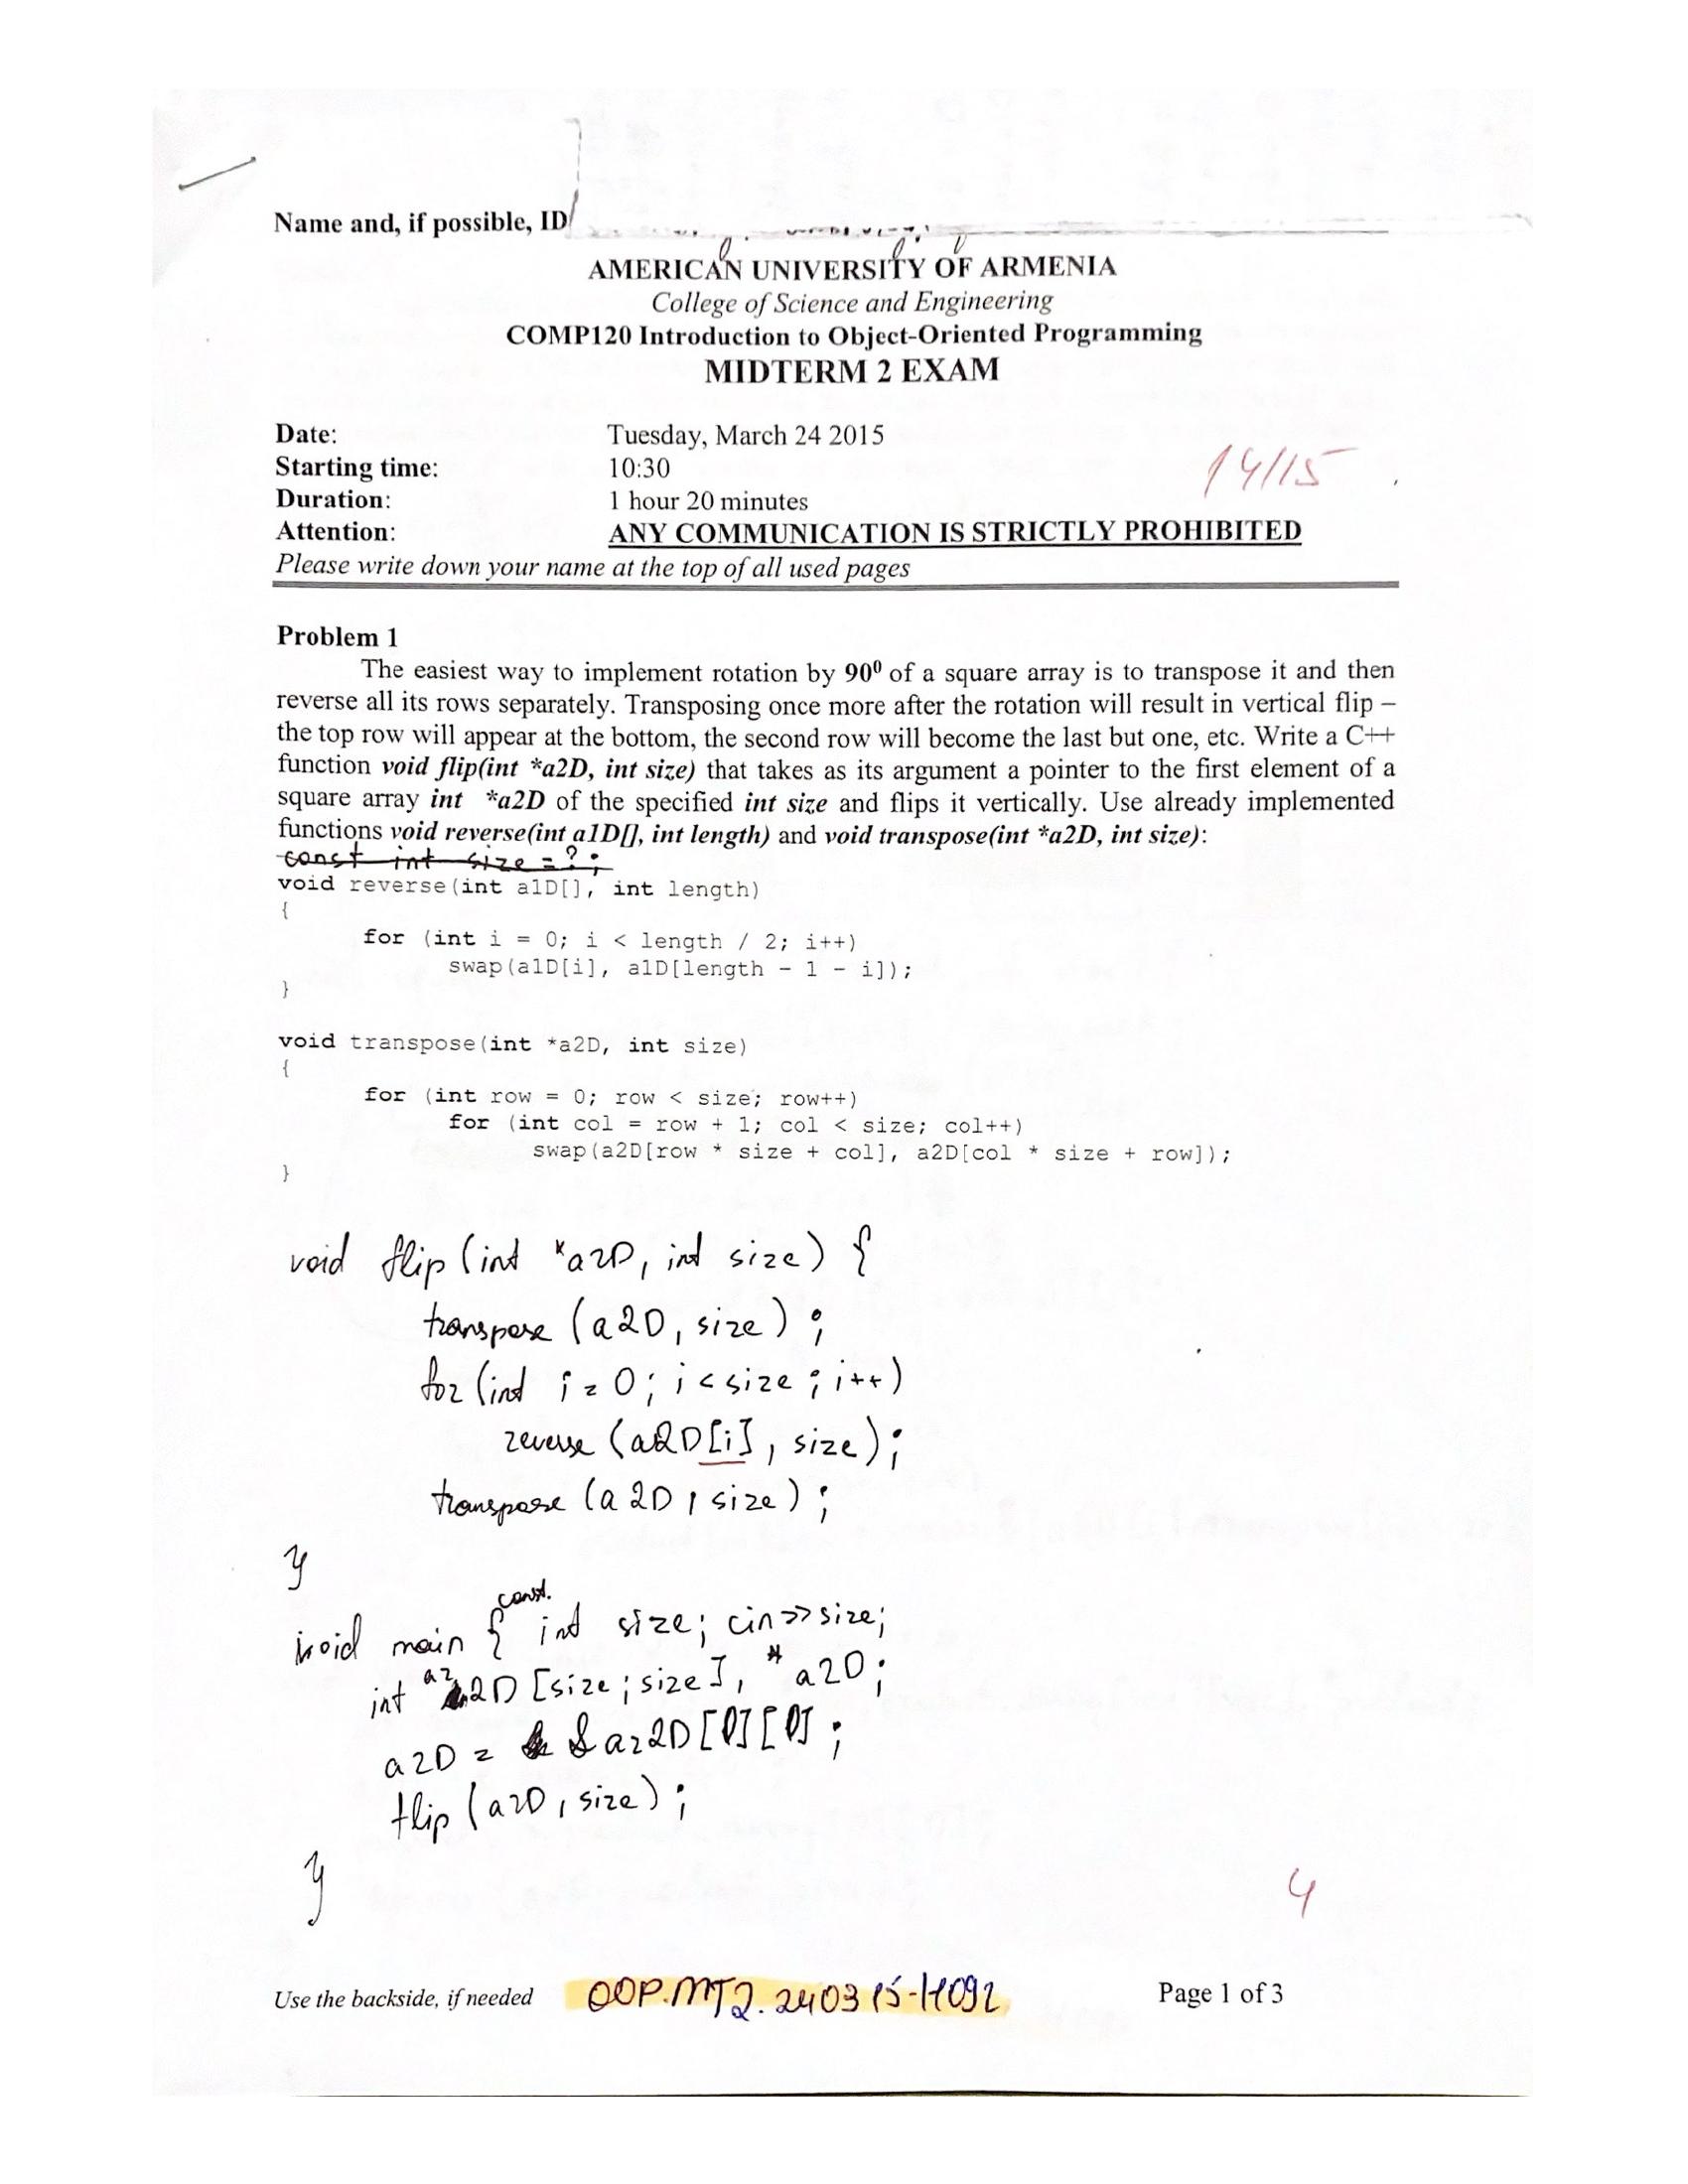 Name and, if possible, ID
AMERICAN UNIVERSITY OF ARMENIA
College of Science and Engineering
COMP120 Introduction to Object-Oriented Programming
MIDTERM 2 EXAM
Date: Tuesday, March 24 2015
14/15
Starting time: 10:30
Duration: 1 hour 20 minutes
Attention: ANY COMMUNICATION IS STRICTLY PROHIBITED
Please write down your name at the top of all used pages
Problem 1
The easiest way to implement rotation by 90⁰ of a square array is to transpose it and then
reverse all its rows separately. Transposing once more after the rotation will result in vertical flip –
the top row will appear at the bottom, the second row will become the last but one, etc. Write a C++
function void flip(int *a2D, int size) that takes as its argument a pointer to the first element of a
square array int *a2D of the specified int size and flips it vertically. Use already implemented
functions void reverse(int a1D[], int length) and void transpose(int *a2D, int size):
const int size = ?;
void reverse(int a1D[], int length)
{
for (int i = 0; i < length / 2; i++)
swap(a1D[i], a1D[length - 1 - i]);
}
void transpose(int *a2D, int size)
{
for (int row = 0; row < size; row++)
for (int col = row + 1; col < size; col++)
swap(a2D[row * size + col], a2D[col * size + row]);
}
void flip (int *a2D, int size) {
transpose (a2D, size);
for (int i = 0; i < size; i++)
reverse (a2D[i], size);
transpose (a2D, size);
}
const.
void main { int size; cin >> size;
int az2D [size; size], *a2D;
a2D = &az2D[0][0];
flip (a2D, size);
}
4
Use the backside, if needed
OOP.MT2.240315-H092
Page 1 of 3